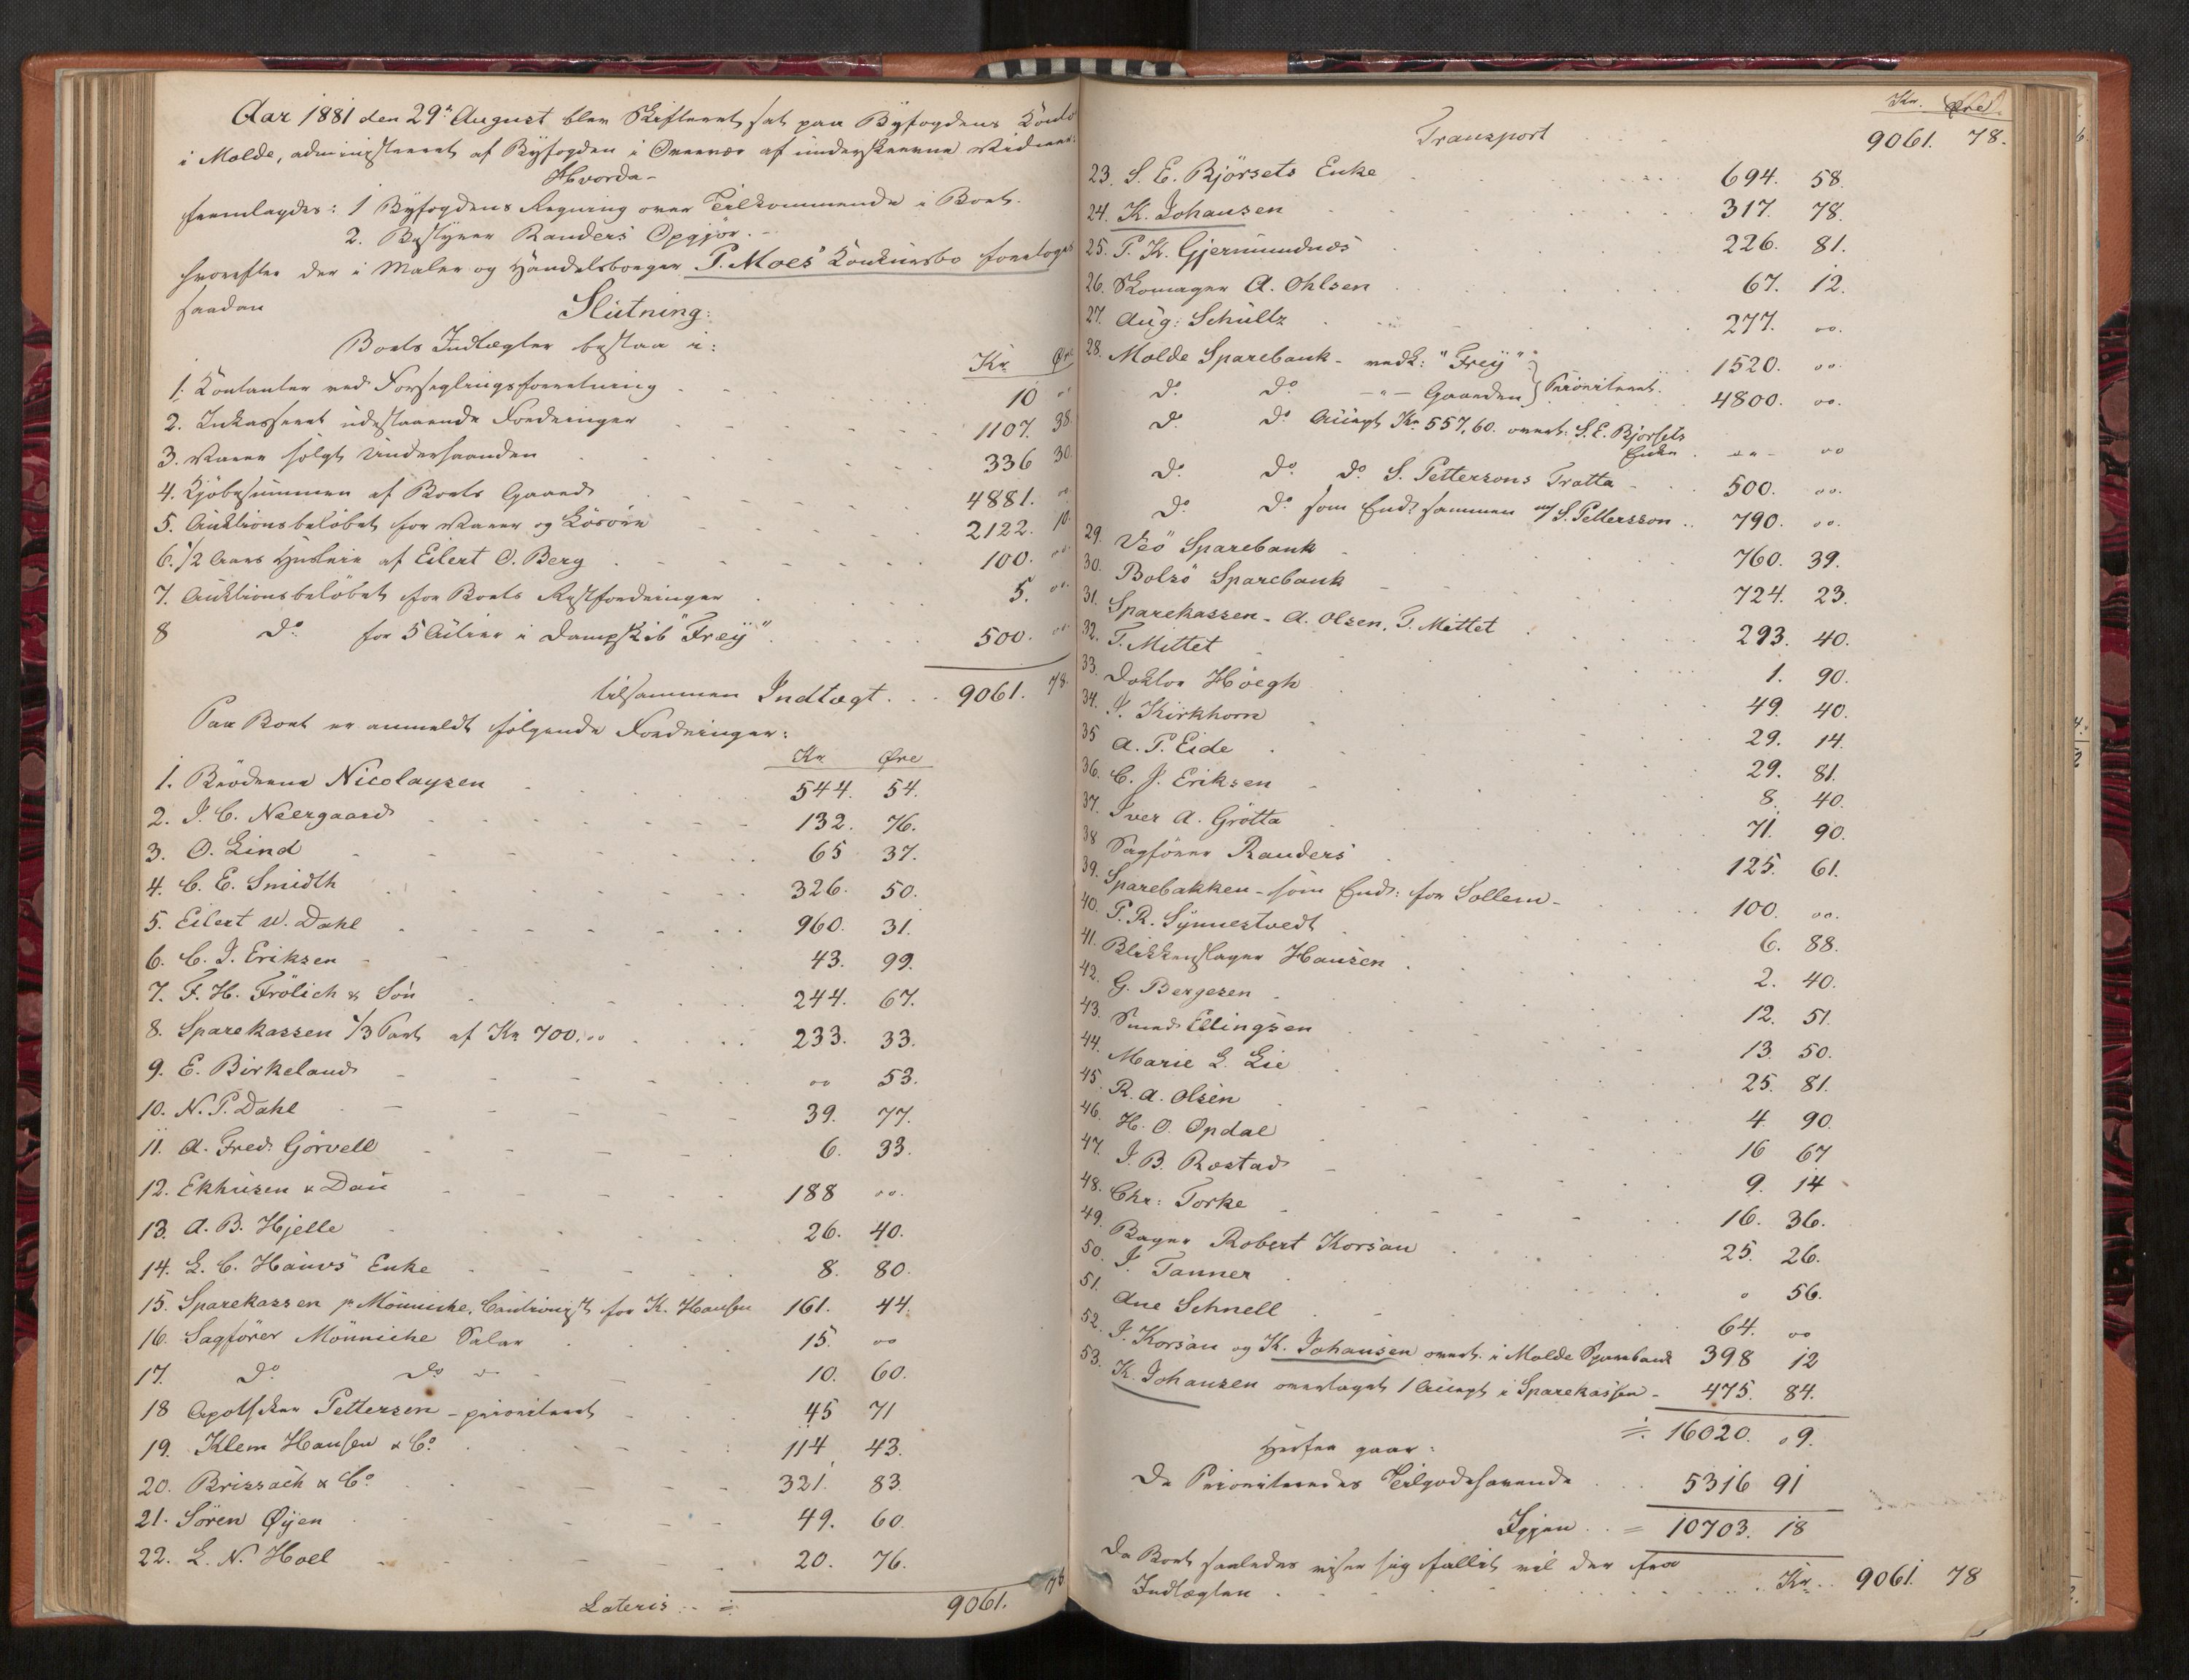 Aar 1881 den 29de August blev Skifteret sat paa Byfogdens Konto
i Molde, administreret af Byfogden i Overvær af underskrevne Vidner:
Hvorda-
fremlagdes: 1 Byfogdens Regning over Tilkommende i Boet.
2. Bestyrer Randers Opgjør.-
hvorefter der i Maler og Handelsborger P. Moes Konkursbo foretoges
saadan
Slutning:
Boets Indtægter bestaa i:
Kr. Øre
1. Kontanter ved Forseglingsforretning 10 "
2. Inkasseret udestaaende Fordringer 1107. 38.
3. Varer solgt Underhaanden 336 30.
4. Kjøbesummen af Boets Gaard 4881. "
5. Auktionsbeløbet for Varer og Løsøre 2122. 10.
6. 1/2 Aars Husleie af Eilert O. Berg 100. "
7. Auktionsbeløbet for Boets Restfordringer 5. "
8 Do. for 5 Actier i Dampskib "Frey" 500. "
tilsammen Indtægt 9061. 78.
Paa Boet er anmeldt følgende Fordringer:
Kr. Øre
1. Brødrene Nicolaysen 544. 54.
2. J. C. Neergaard 132. 76.
3. O. Lind 65 37.
4. C. E. Smidth 326. 50.
5. Eilert W. Dahl 960. 31.
6. C. J. Eriksen 43. 99.
7. F. H. Frölich & Sön 244. 67.
8. Sparekassen 1/3 Part af Kr 700,00 233. 33.
9. E. Birkeland oo 53.
10. N. P. Dahl 39. 77.
11. A. Fred. Görvell 6. 33.
12. Ekhusen & Dau 188 oo.
13. A. B. Hjelle 26. 40.
14. L. C. Enke 8. 80.
15. Sparekassen pr Mönniche, Cautionist for K. Hansen 161. 44.
16. Sagförer Mönniche Salær 15. oo
17. Do Do 10. 60.
18 Apotheker Pettersen - prioriteret 45 71
19. Klem Hansen & Co. 114 43.
20. Brissach & Co 321. 83.
21. Sören Øyen 49. 60.
22. L. N. Hoel 20. 76.
Lateris 9061. 78
Kr. Øre.
Transport 9061. 78.
23. S. E. Bjørsets Enke 694. 58.
24. K. Johansen 317. 78.
25. P. K. Gjermundnæs 226. 81.
26. Skomager A. Ohlsen 67. 12.
27. Aug: Schultz 277. oo.
28. Molde Sparebank - vedk: "Frey" 1520. oo.
Do. Do. -"- Gaarden } Prioriteret. 4800. oo.
Do. Do Accept Kr. 557,60. overt: S. E. Bjørsets
Enke -"- oo
Do. Do. Do S. Petterssons Tratta 500. oo.
Do. Do som End: sammen m/ S. Pettersson 790. oo.
29. Veö Sparebank 760. 39.
30. Bolsö Sparebank 724. 23.
31. Sparekassen - A. Olsen, T. Mittet 293. 40.
32. T. Mittet 1. 90.
33. Doktor Höegh 49. 40.
34. J. Kirkhorn 29. 14.
35 A. P. Eide 29. 81.
36. C. J. Eriksen 8. 40.
37. Iver A. Grötta 71. 90.
38 Sagförer Randers 125. 61.
39. Sparebakken - som End: for Sollem - 100. oo.
40. P. R. Synnestvedt 6. 88.
41. Blikkenslager Hansen 2. 40.
42. G. Bergesen 12. 51.
43. Smed Ellingsen 13. 50.
44. Marie L. Lie 25. 81.
45. R. A. Olsen 4. 90.
46. H. O. Opdal 16 67
47. J. B. Rostad 9. 14
48. Chr: Torke 16. 36.
49. Bager Robert Korsau 25. 26.
50. J. Tanner " 56.
51. Ane Schnell 64. oo
52. J. Korsau og K. Johansen overt. i Molde Sparebank 398 12
53. K. Johansen overtaget 1 Accept i Sparekassen - 475. 84.
÷ 16020. 09.
Herfra gaar:
De Prioriteredes Tilgodehavende 5316 91
Igjen = 10703. 18
Da Boet saaledes viser sig fallit vil der fra
Indtægten Kr. 9061. 78